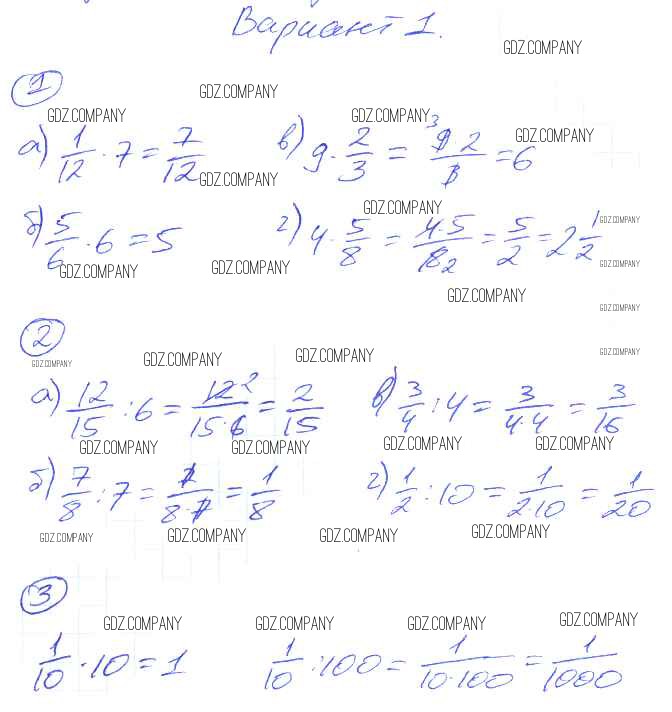 Вариант 1.
GDZ.COMPANY
1
GDZ.COMPANY
GDZ.COMPANY GDZ.COMPANY GDZ.COMPANY
а) 1/12 · 7 = 7/12 в) 9 · 2/3 = 9 3 · 2/3 = 6
GDZ.COMPANY GDZ.COMPANY GDZ.COMPANY
б) 5/6 · 6 = 5 г) 4 · 5/8 = 4·5/8 2 = 5/2 = 2 1/2
GDZ.COMPANY GDZ.COMPANY GDZ.COMPANY
GDZ.COMPANY GDZ.COMPANY
2
GDZ.COMPANY GDZ.COMPANY GDZ.COMPANY GDZ.COMPANY
а) 12/15 : 6 = 12 2/15·6 = 2/15 в) 3/4 : 4 = 3/4·4 = 3/16
GDZ.COMPANY GDZ.COMPANY GDZ.COMPANY GDZ.COMPANY
б) 7/8 : 7 = 7/8·7 = 1/8 г) 1/2 : 10 = 1/2·10 = 1/20
GDZ.COMPANY GDZ.COMPANY GDZ.COMPANY GDZ.COMPANY
3
GDZ.COMPANY GDZ.COMPANY GDZ.COMPANY GDZ.COMPANY
1/10 · 10 = 1 1/10 : 100 = 1/10·100 = 1/1000